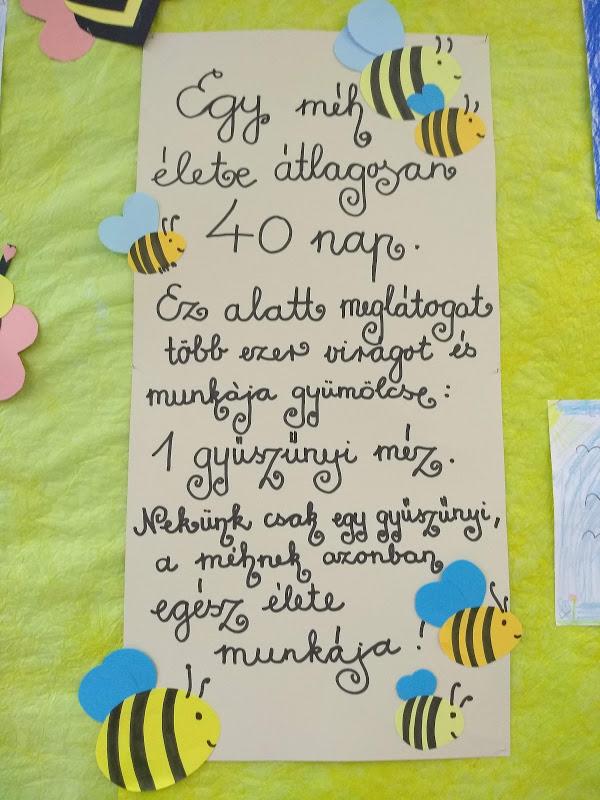 Egy méh
élete átlagosan
40 nap.
Ez alatt meglátogat
több ezer virágot és
munkája gyümölcse:
1 gyűszűnyi méz.
Nekünk csak egy gyűszűnyi,
a méhnek azonban
egész élete
munkája!